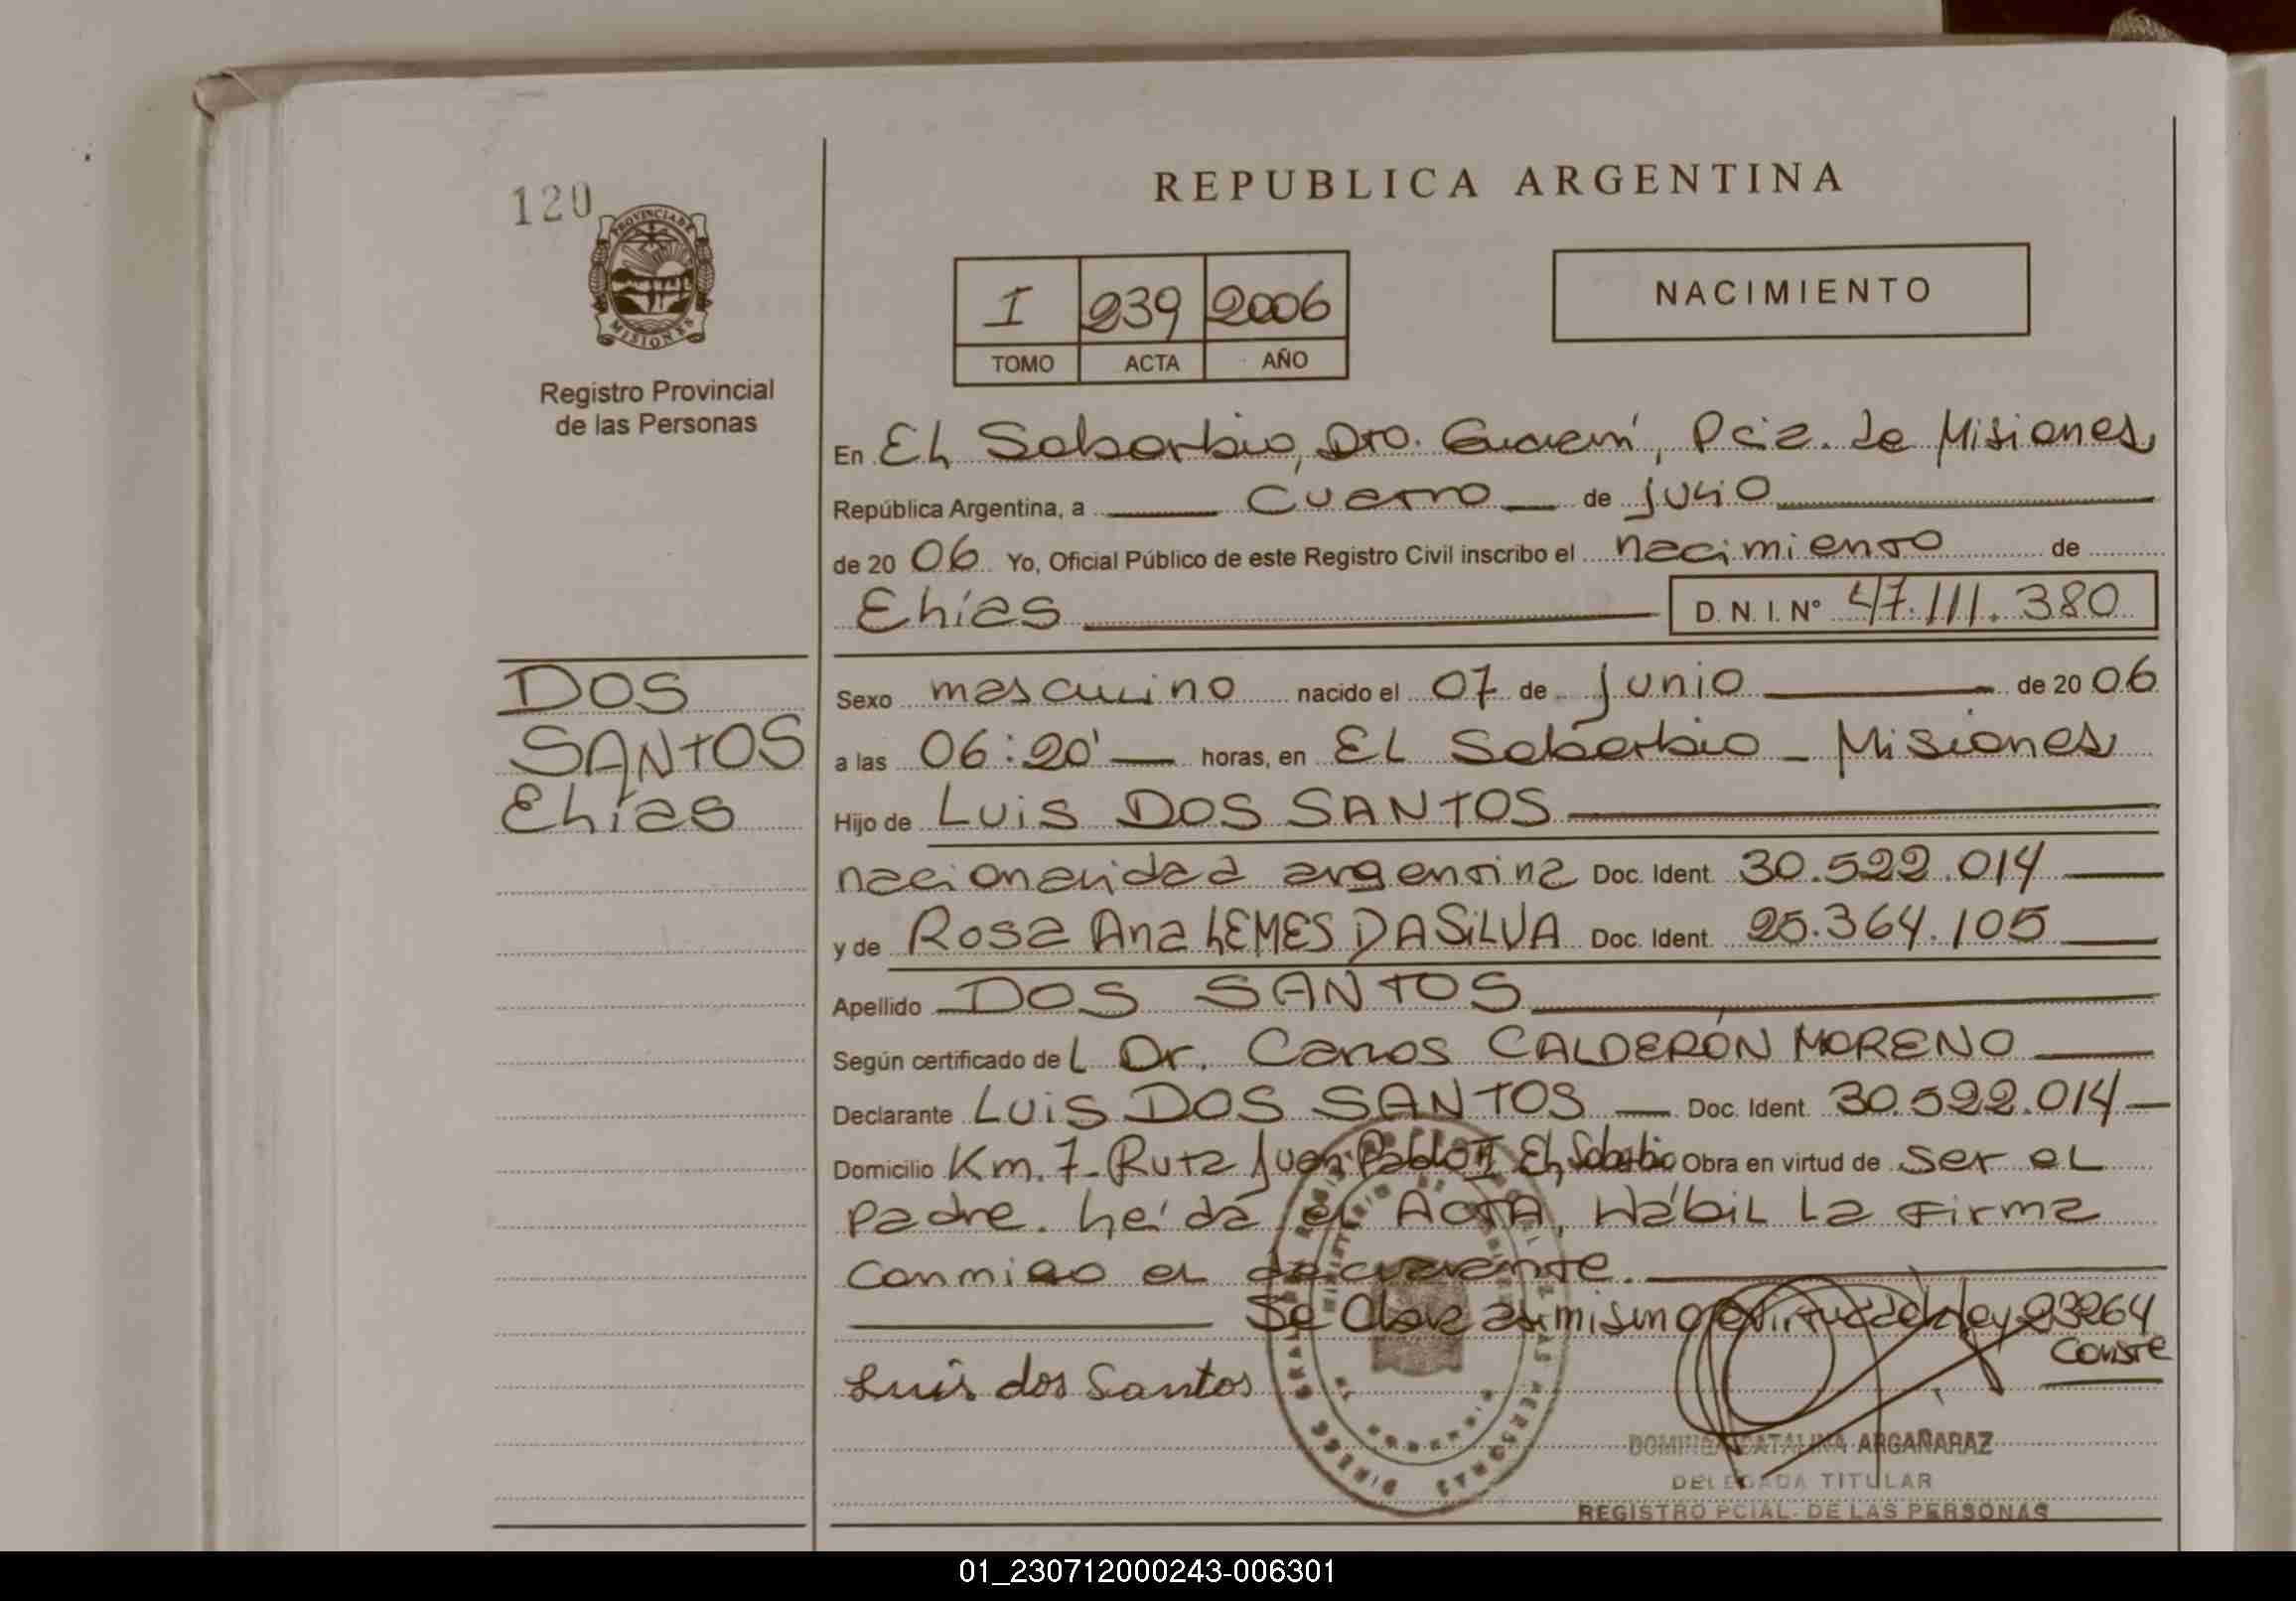 120
PROVINCIA DE
MISIONES
Registro Provincial
de las Personas
REPUBLICA ARGENTINA
I 239 2006
TOMO ACTA AÑO
NACIMIENTO
En EL Soberbio, Dto. Guaraní, Pcia. de Misiones,
República Argentina, a cuatro de julio
de 2006 Yo, Oficial Público de este Registro Civil inscribo el nacimiento de
Elías D.N.I. Nº 47.111.380
DOS
SANTOS
Elías
Sexo masculino nacido el 07 de junio de 2006
a las 06:20' horas, en EL Soberbio - Misiones
Hijo de Luis DOS SANTOS
nacionalidad argentina Doc. Ident. 30.522.014
y de Rosa Ana LEMES DA SILVA Doc. Ident. 25.364.105
Apellido DOS SANTOS
Según certificado del Dr. Carlos CALDERÓN MORENO
Declarante Luis DOS SANTOS Doc. Ident. 30.522.014
Domicilio Km. 7 - Ruta Juan Pablo II El Soberbio Obra en virtud de ser el
padre. Leída el ACTA, Hábil la firma
conmigo el declarante.
Se Obra asimismo virtud de ley 23264
conste
Luis dos Santos
DOMINGA CATALINA ARGAÑARAZ
DELEGADA TITULAR
REGISTRO PCIAL. DE LAS PERSONAS
01_230712000243-006301